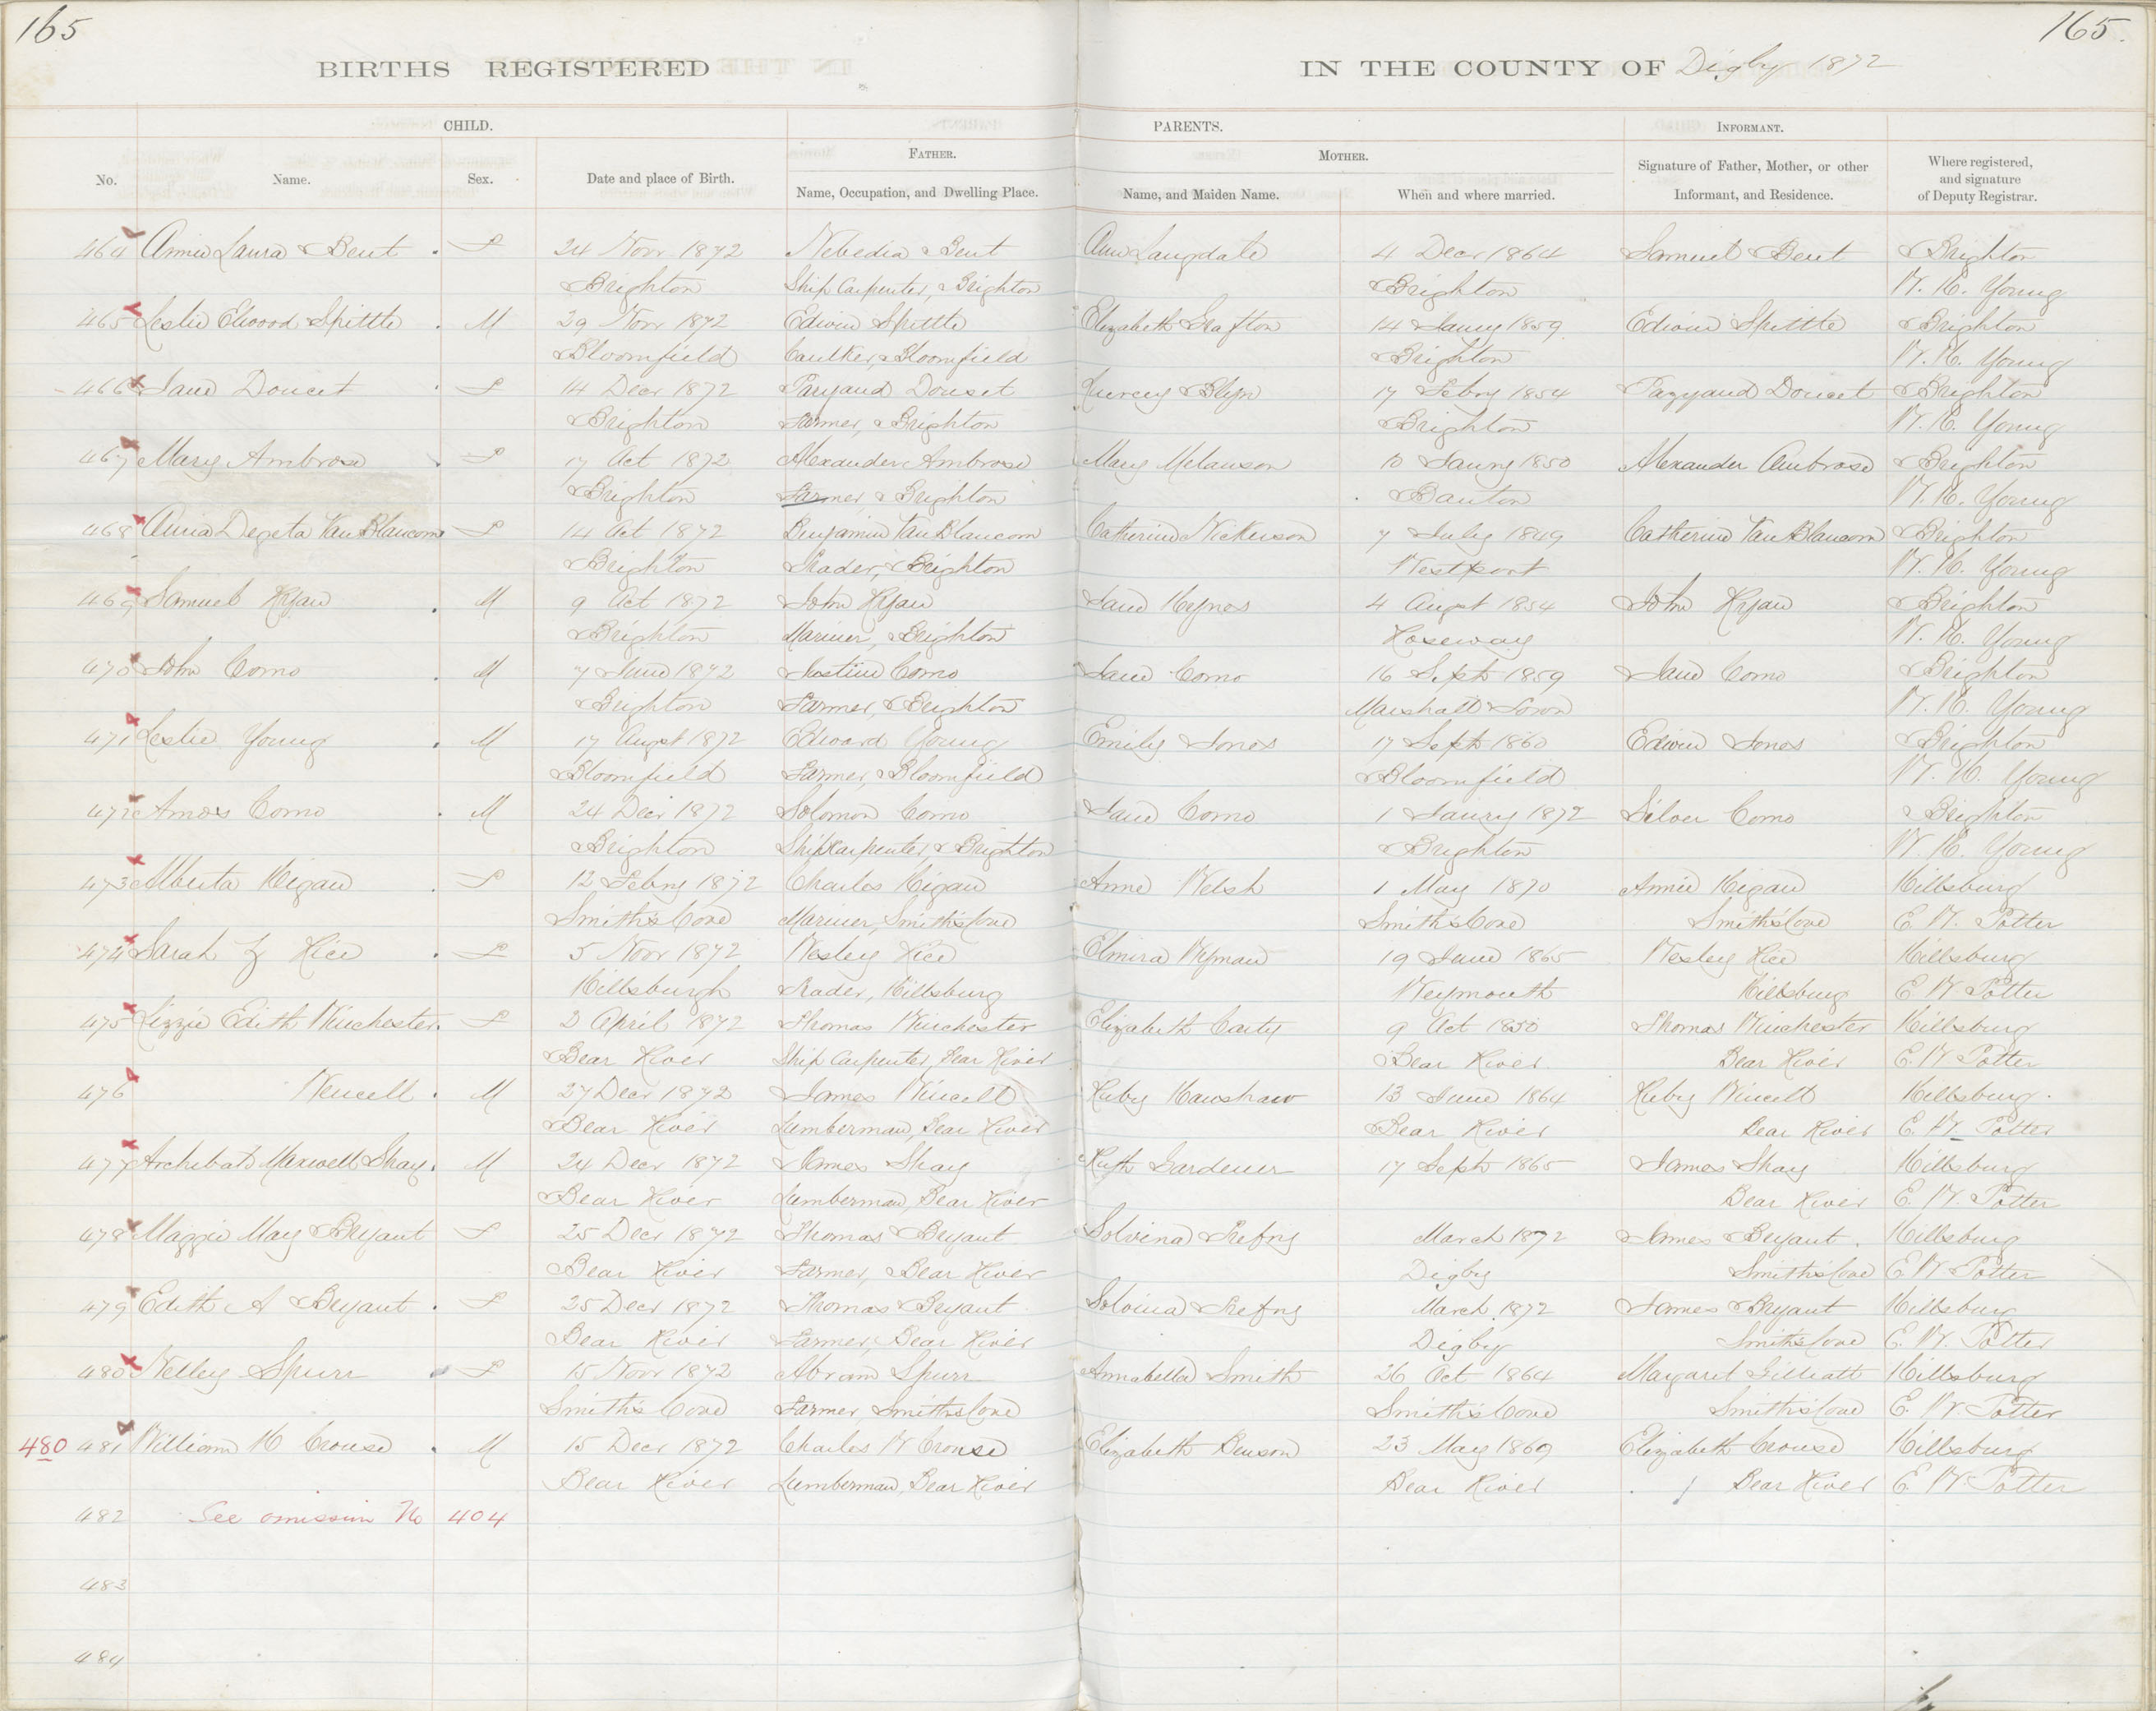 165
165.
BIRTHS REGISTERED IN THE COUNTY OF Digby 1872
CHILD. PARENTS. INFORMANT.
FATHER. MOTHER.
No. Name. Sex. Date and place of Birth. Name, Occupation, and Dwelling Place. Name, and Maiden Name. When and where married. Signature of Father, Mother, or other Informant, and Residence. Where registered, and signature of Deputy Registrar.
464 Annie Laura Bent F 24 Novr 1872 Bent Ann Langdale 4 Decr 1864 Samuel Bent Brighton
Brighton Ship Carpenter, Brighton Brighton W. H. Young
465 Leslie Elwood Spittle M 29 Novr 1872 Edwin Spittle Elizabeth Grafton 14 Jany 1859 Edwin Spittle Brighton
Bloomfield Caulker, Bloomfield Brighton W. H. Young
466 Jane Doucet F 14 Decr 1872 Doucet 17 Febry 1854 Doucet Brighton
Brighton Farmer, Brighton Brighton W. H. Young
467 Mary Ambrose F 17 Oct 1872 Alexander Ambrose Mary Melanson 10 Jany 1850 Alexander Ambrose Brighton
Brighton Farmer, Brighton W. H. Young
468 Van Blaucom F 14 Oct 1872 Benjamin Van Blaucom Catherine Nickerson 7 July 1849 Catherine Van Blaucom Brighton
Brighton Trader, Brighton Westport W. H. Young
469 Samuel Ryan M 9 Oct 1872 John Ryan Jane 4 Augst 1854 John Ryan Brighton
Brighton Mariner, Brighton Roseway W. H. Young
470 John Como M 7 June 1872 Justin Como Jane Como 16 Sept 1859 Jane Como Brighton
Brighton Farmer, Brighton Marshall Town W. H. Young
471 Leslie Young M 17 Augst 1872 Edward Young Emily Jones 17 Sept 1860 Edwin Jones Brighton
Bloomfield Farmer, Bloomfield Bloomfield W. H. Young
472 Amos Como M 24 Decr 1872 Solomon Como Jane Como 1 Janry 1872 Silver Como Brighton
Brighton Ship Carpenter, Brighton Brighton W. H. Young
473 Alberta F 12 Febry 1872 Charles Anne Welsh 1 May 1870 Annie Hillsburg
Smith's Cove Mariner, Smith's Cove Smith's Cove Smith's Cove E. W. Potter
474 Sarah J Rice F 5 Novr 1872 Wesley Rice Elmira Wyman 19 June 1865 Wesley Rice Hillsburg
Hillsburgh Trader, Hillsburg Weymouth Hillsburg E W Potter
475 Lizzie Edith Winchester F 2 April 1872 Thomas Winchester Elizabeth Carty 9 Oct 1850 Thomas Winchester Hillsburg
Bear River Ship Carpenter, Bear River Bear River Bear River E. W Potter
476 Wencell M 27 Decr 1872 James Wincell Ruby Hawshaw 13 June 1864 Ruby Wincell Hillsburg.
Bear River Lumberman, Bear River Bear River Bear River E. W. Potter
477 Archibald Maxwell Shay M 24 Decr 1872 James Shay Ruth Gardener 17 Sept 1865 James Shay Hillsburg
Bear River Lumberman, Bear River Bear River E. W. Potter
478 Maggie May Bryant F 25 Decr 1872 Thomas Bryant Solvina Trefry March 1872 James Bryant Hillsburg
Bear River Farmer, Bear River Digby Smith's Cove E. W Potter
479 Edith A Bryant F 25 Decr 1872 Thomas Bryant Solvina Trefry March 1872 James Bryant Hillsburg
Bear River Farmer, Bear River Digby Smith's Cove E. W. Potter
480 Nelley Spurr F 15 Novr 1872 Abram Spurr Annabella Smith 26 Oct 1864 Margaret Gilliatt Hillsburg
Smith's Cove Farmer, Smith's Cove Smith's Cove Smith's Cove E. W. Potter
480 481 William H Crouse M 15 Decr 1872 Charles W Crouse Elizabeth Benson 23 May 1869 Elizabeth Crouse Hillsburg
Bear River Lumberman, Bear River Bear River Bear River E. W. Potter
482 See omission No 404
483
484